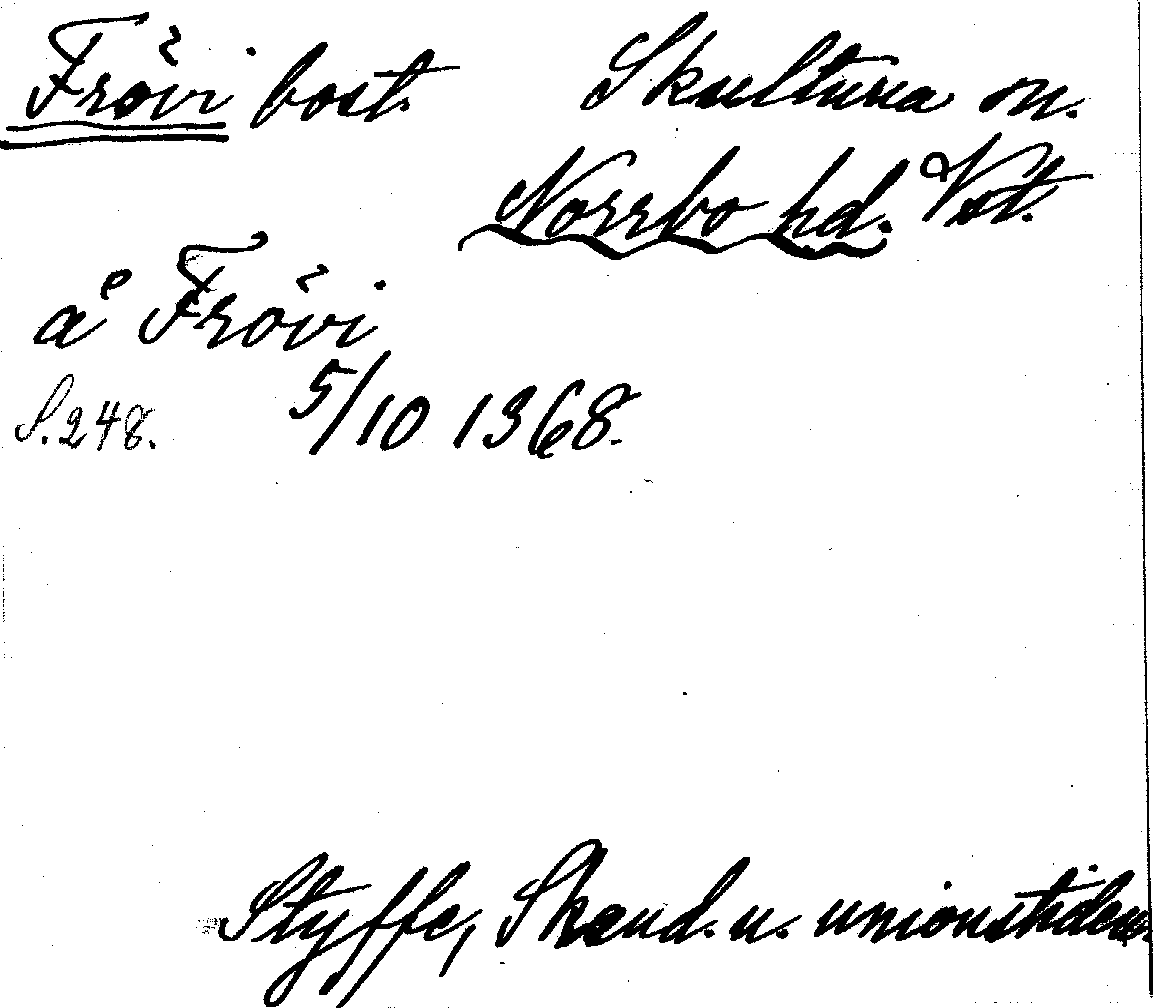 Frövi bost. Skultuna sn.
Norrbo hd. Vst.
a͛ Frövi
S. 248. 5/10 1368.
Styffe, Skand. u. unionstiden.